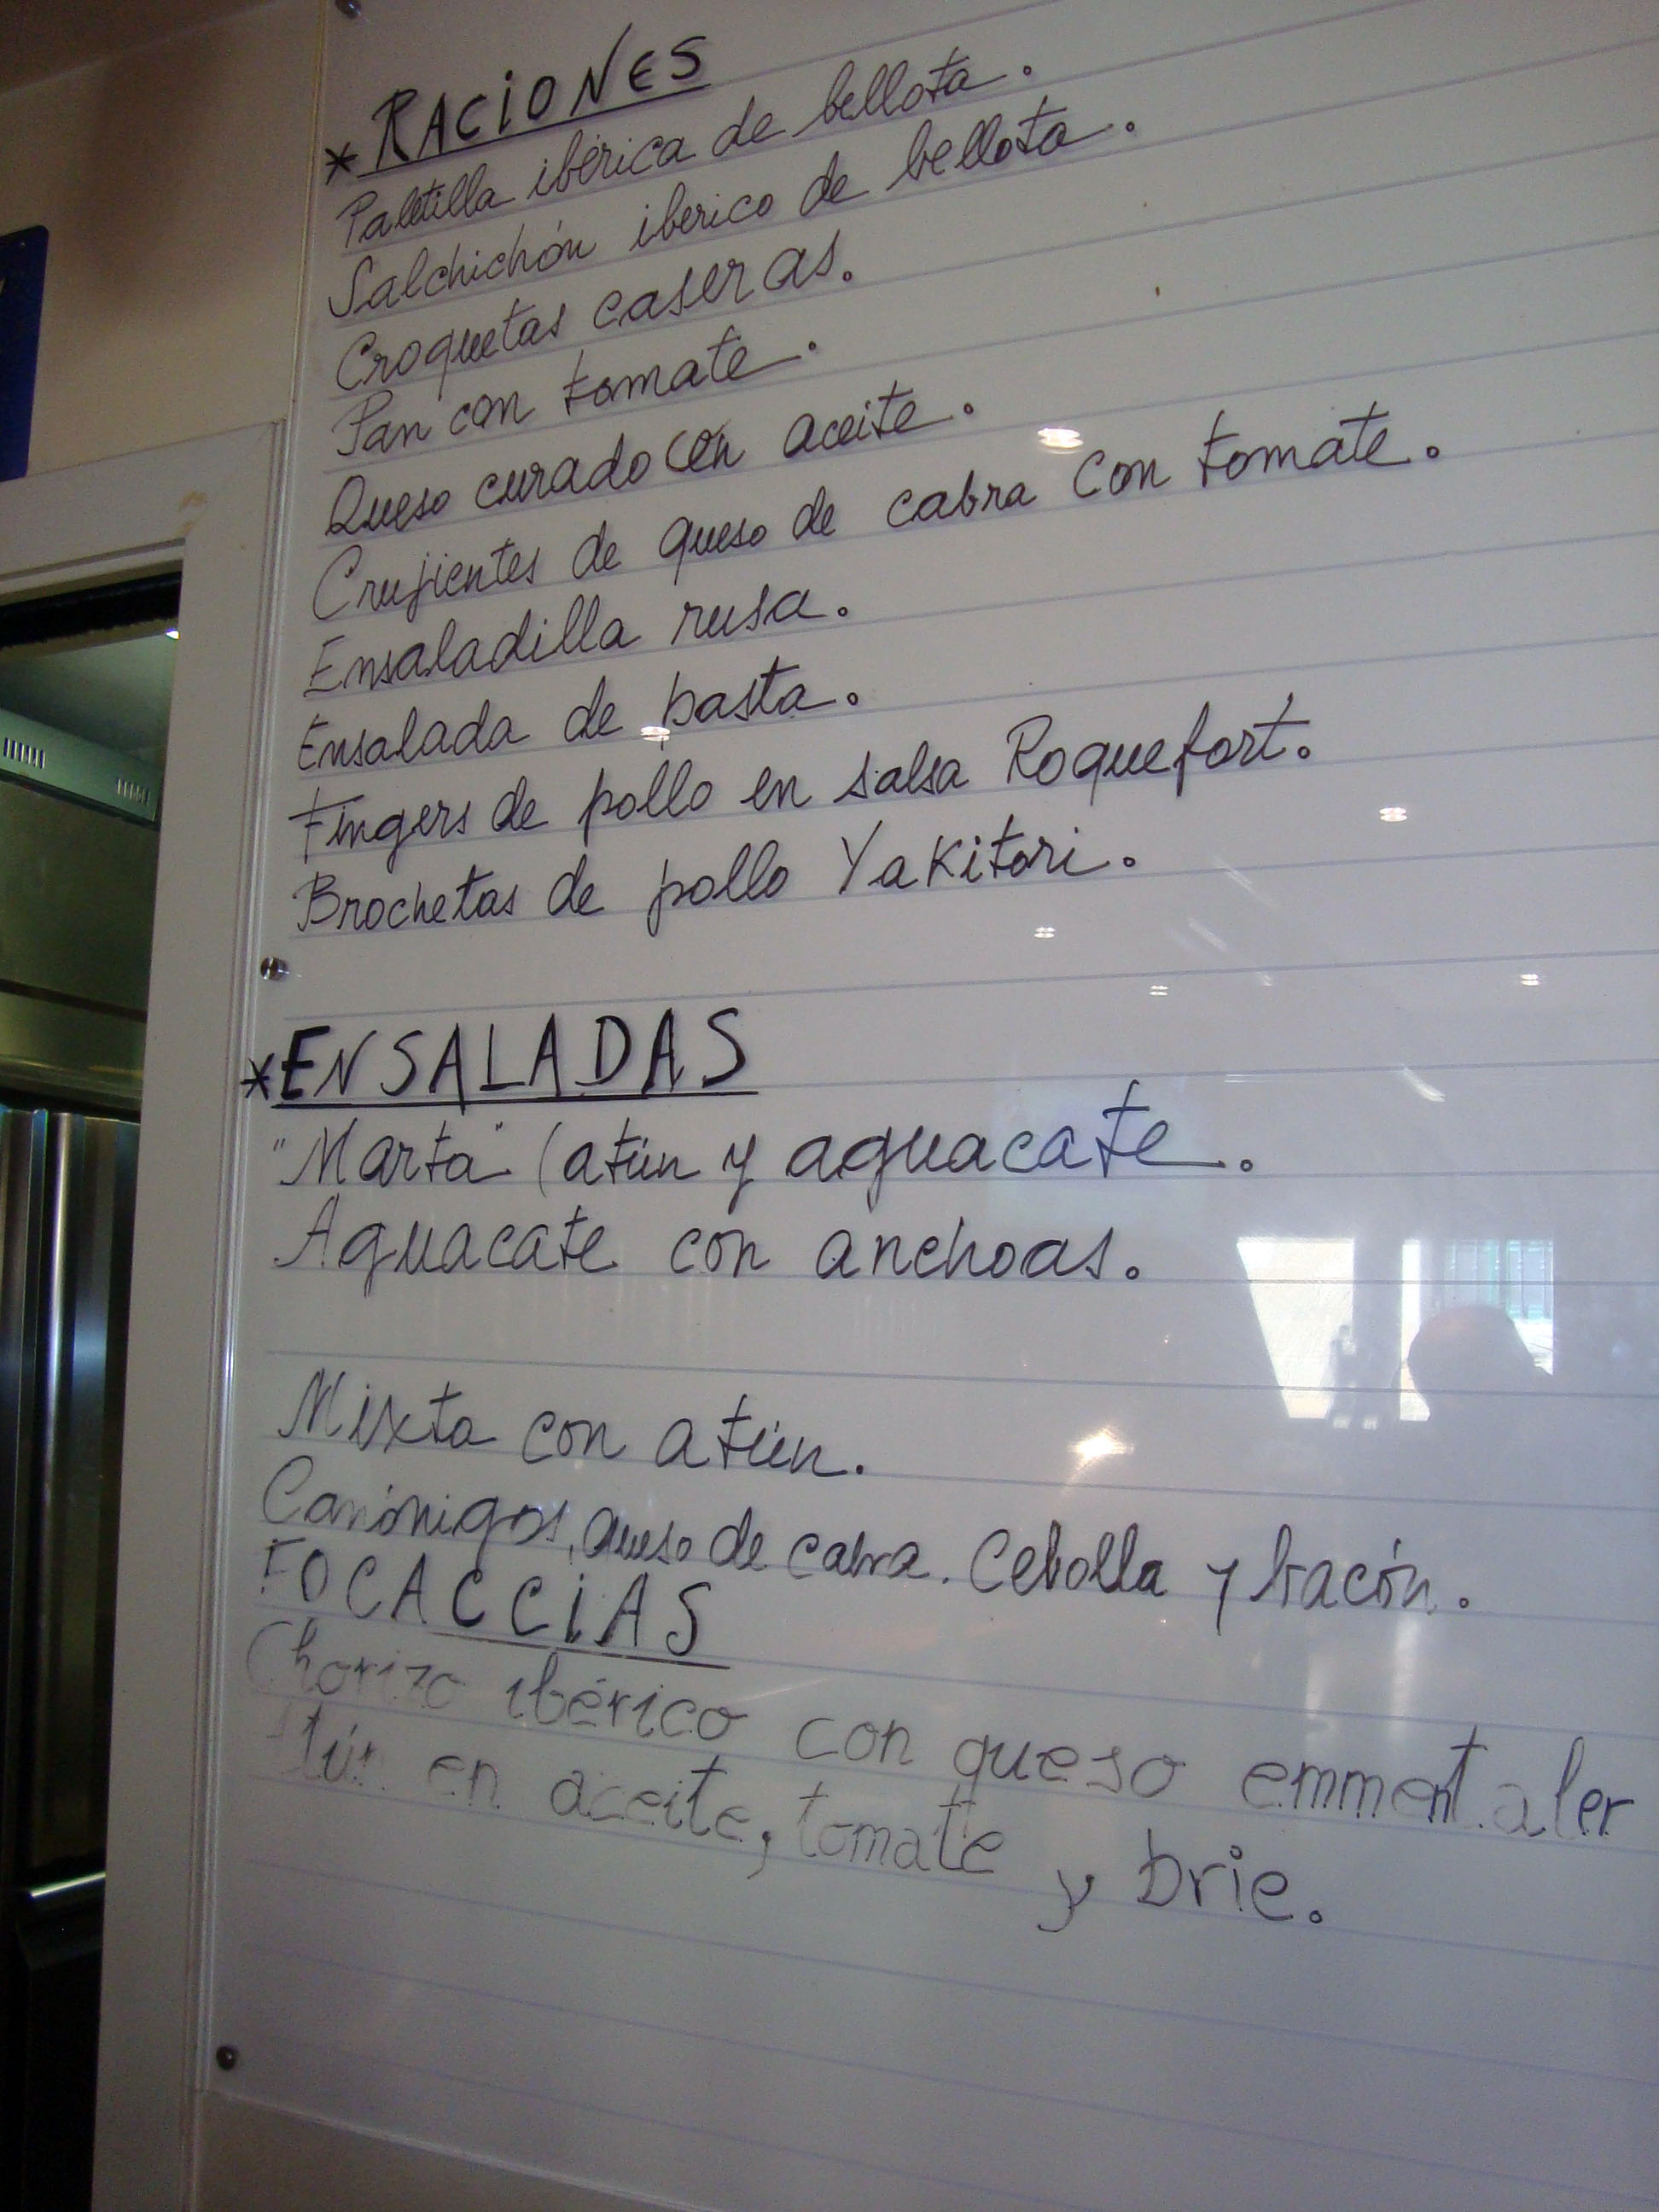 * RACIONES
Paletilla ibérica de bellota.
Salchichón iberico de bellota.
Croquetas caseras.
Pan con tomate.
Queso curado con aceite.
Crujientes de queso de cabra con tomate.
Ensaladilla rusa.
Ensalada de pasta.
Fingers de pollo en salsa Roquefort.
Brochetas de pollo Yakitori.
* ENSALADAS
"Marta" (atún y aguacate.
Aguacate con anchoas.
Mixta con atún.
Canónigos, queso de cabra. Cebolla y bacón.
FOCACCIAS
Chorizo ibérico con queso emmentaler
tún en aceite, tomate y brie.